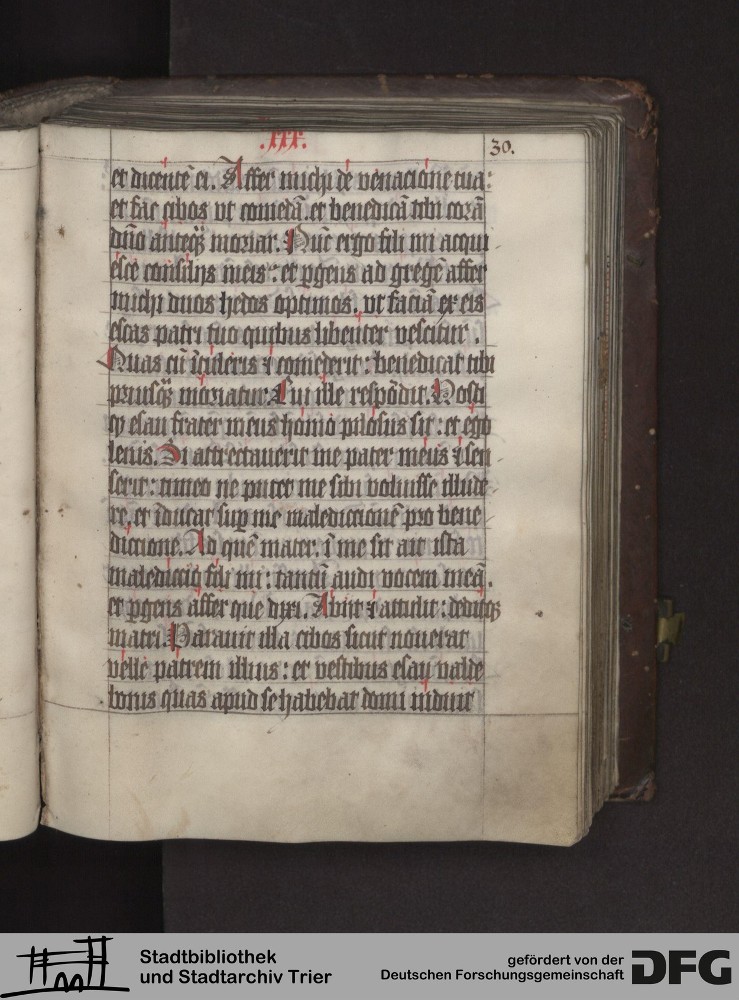 .xxx.
30.
et dicentē ei. Affer michi de venacione tua:
et fac cibos vt comedā. et benedicā tibi corā
dn̄o anteq̄ moriar. Nūc ergo fili mi acqui
esce consilijs meis: et ꝑgens ad gregē affer
michi duos hedos optimos. vt faciā ex eis
escas patri tuo quibus libenter vescitur.
Quas cū ītuleris ⁊ comederit: benedicat tibi
priusq̄ moriatur. Cui ille respōdit. Nosti
ꝙ esau frater meus homo pilosus sit: et ego
lenis. Si attrectauerit me pater meus ⁊ sen
serit: timeo ne putet me sibi voluisse illude
re, et īducat sup̄ me malediccionē pro bene
diccione. Ad quē mater. ī me sit ait ista
malediccio fili mi: tantū audi vocem meā.
et ꝑgens affer que dixi. Abijt ⁊ attulit: deditqꝫ
matri. Parauit illa cibos sicut nouerat
velle patrem illius: et vestibus esau valde
bonis quas apud se habebat domi īduit
Stadtbibliothek
und Stadtarchiv Trier
gefördert von der
Deutschen Forschungsgemeinschaft
DFG